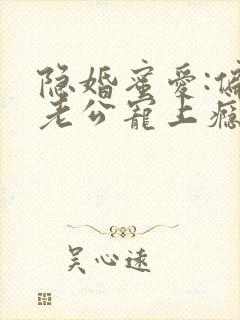 隐婚蜜爱:偏
老公宠上瘾
吴心远